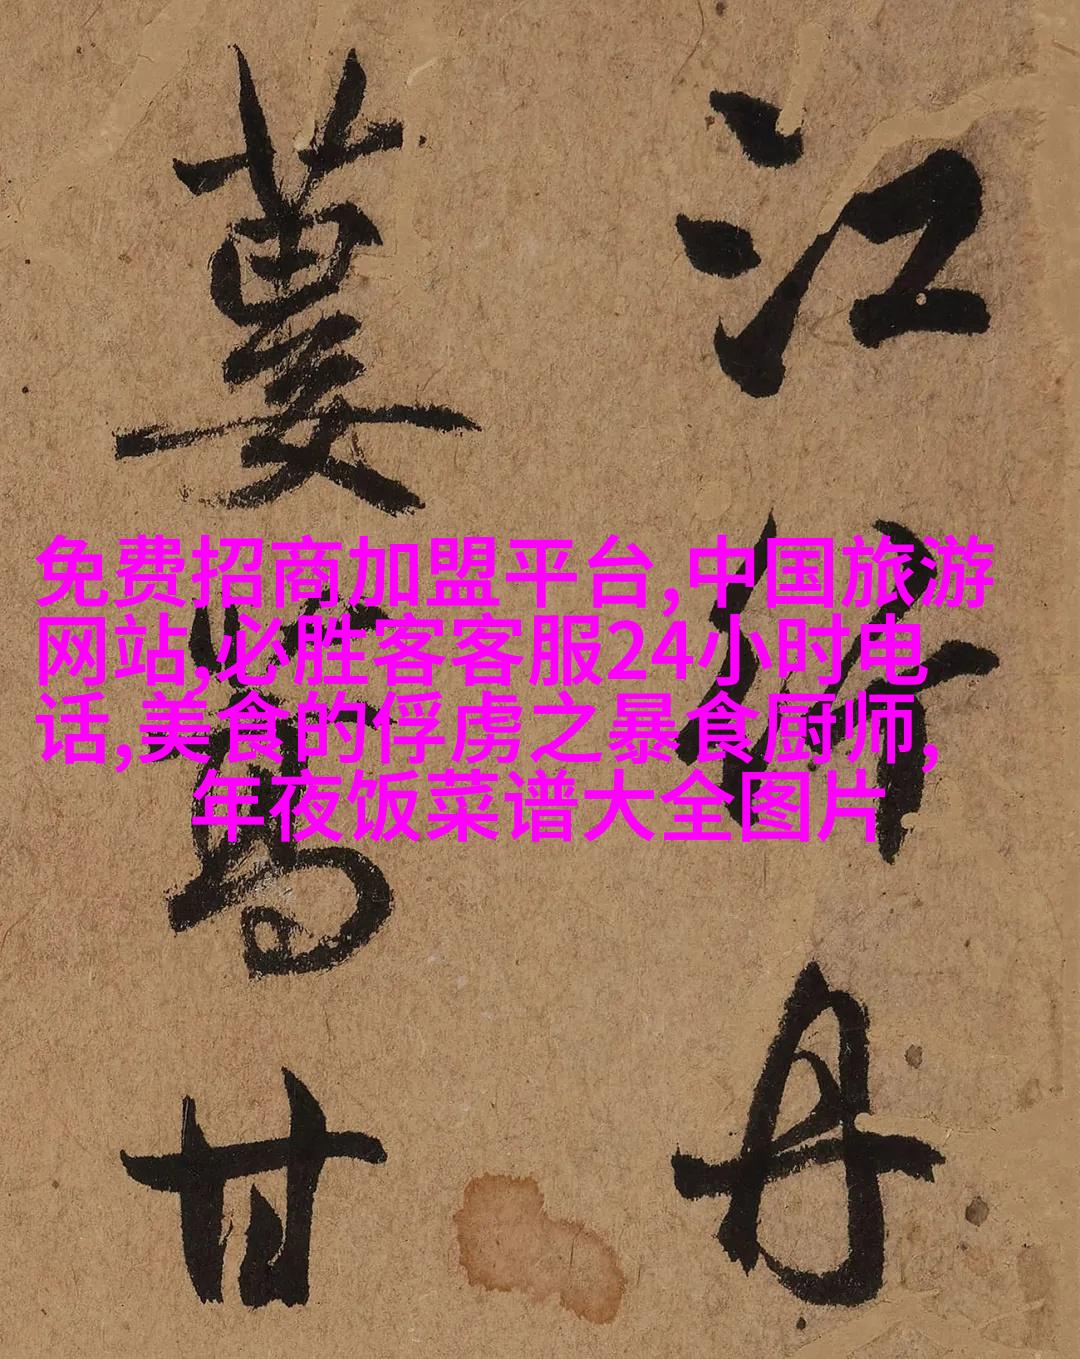 江
丹
蔞蒿甘
免费招商加盟平台,中国旅游
网站,必胜客客服24小时电
话,美食的俘虏之暴食厨师,
年夜饭菜谱大全图片